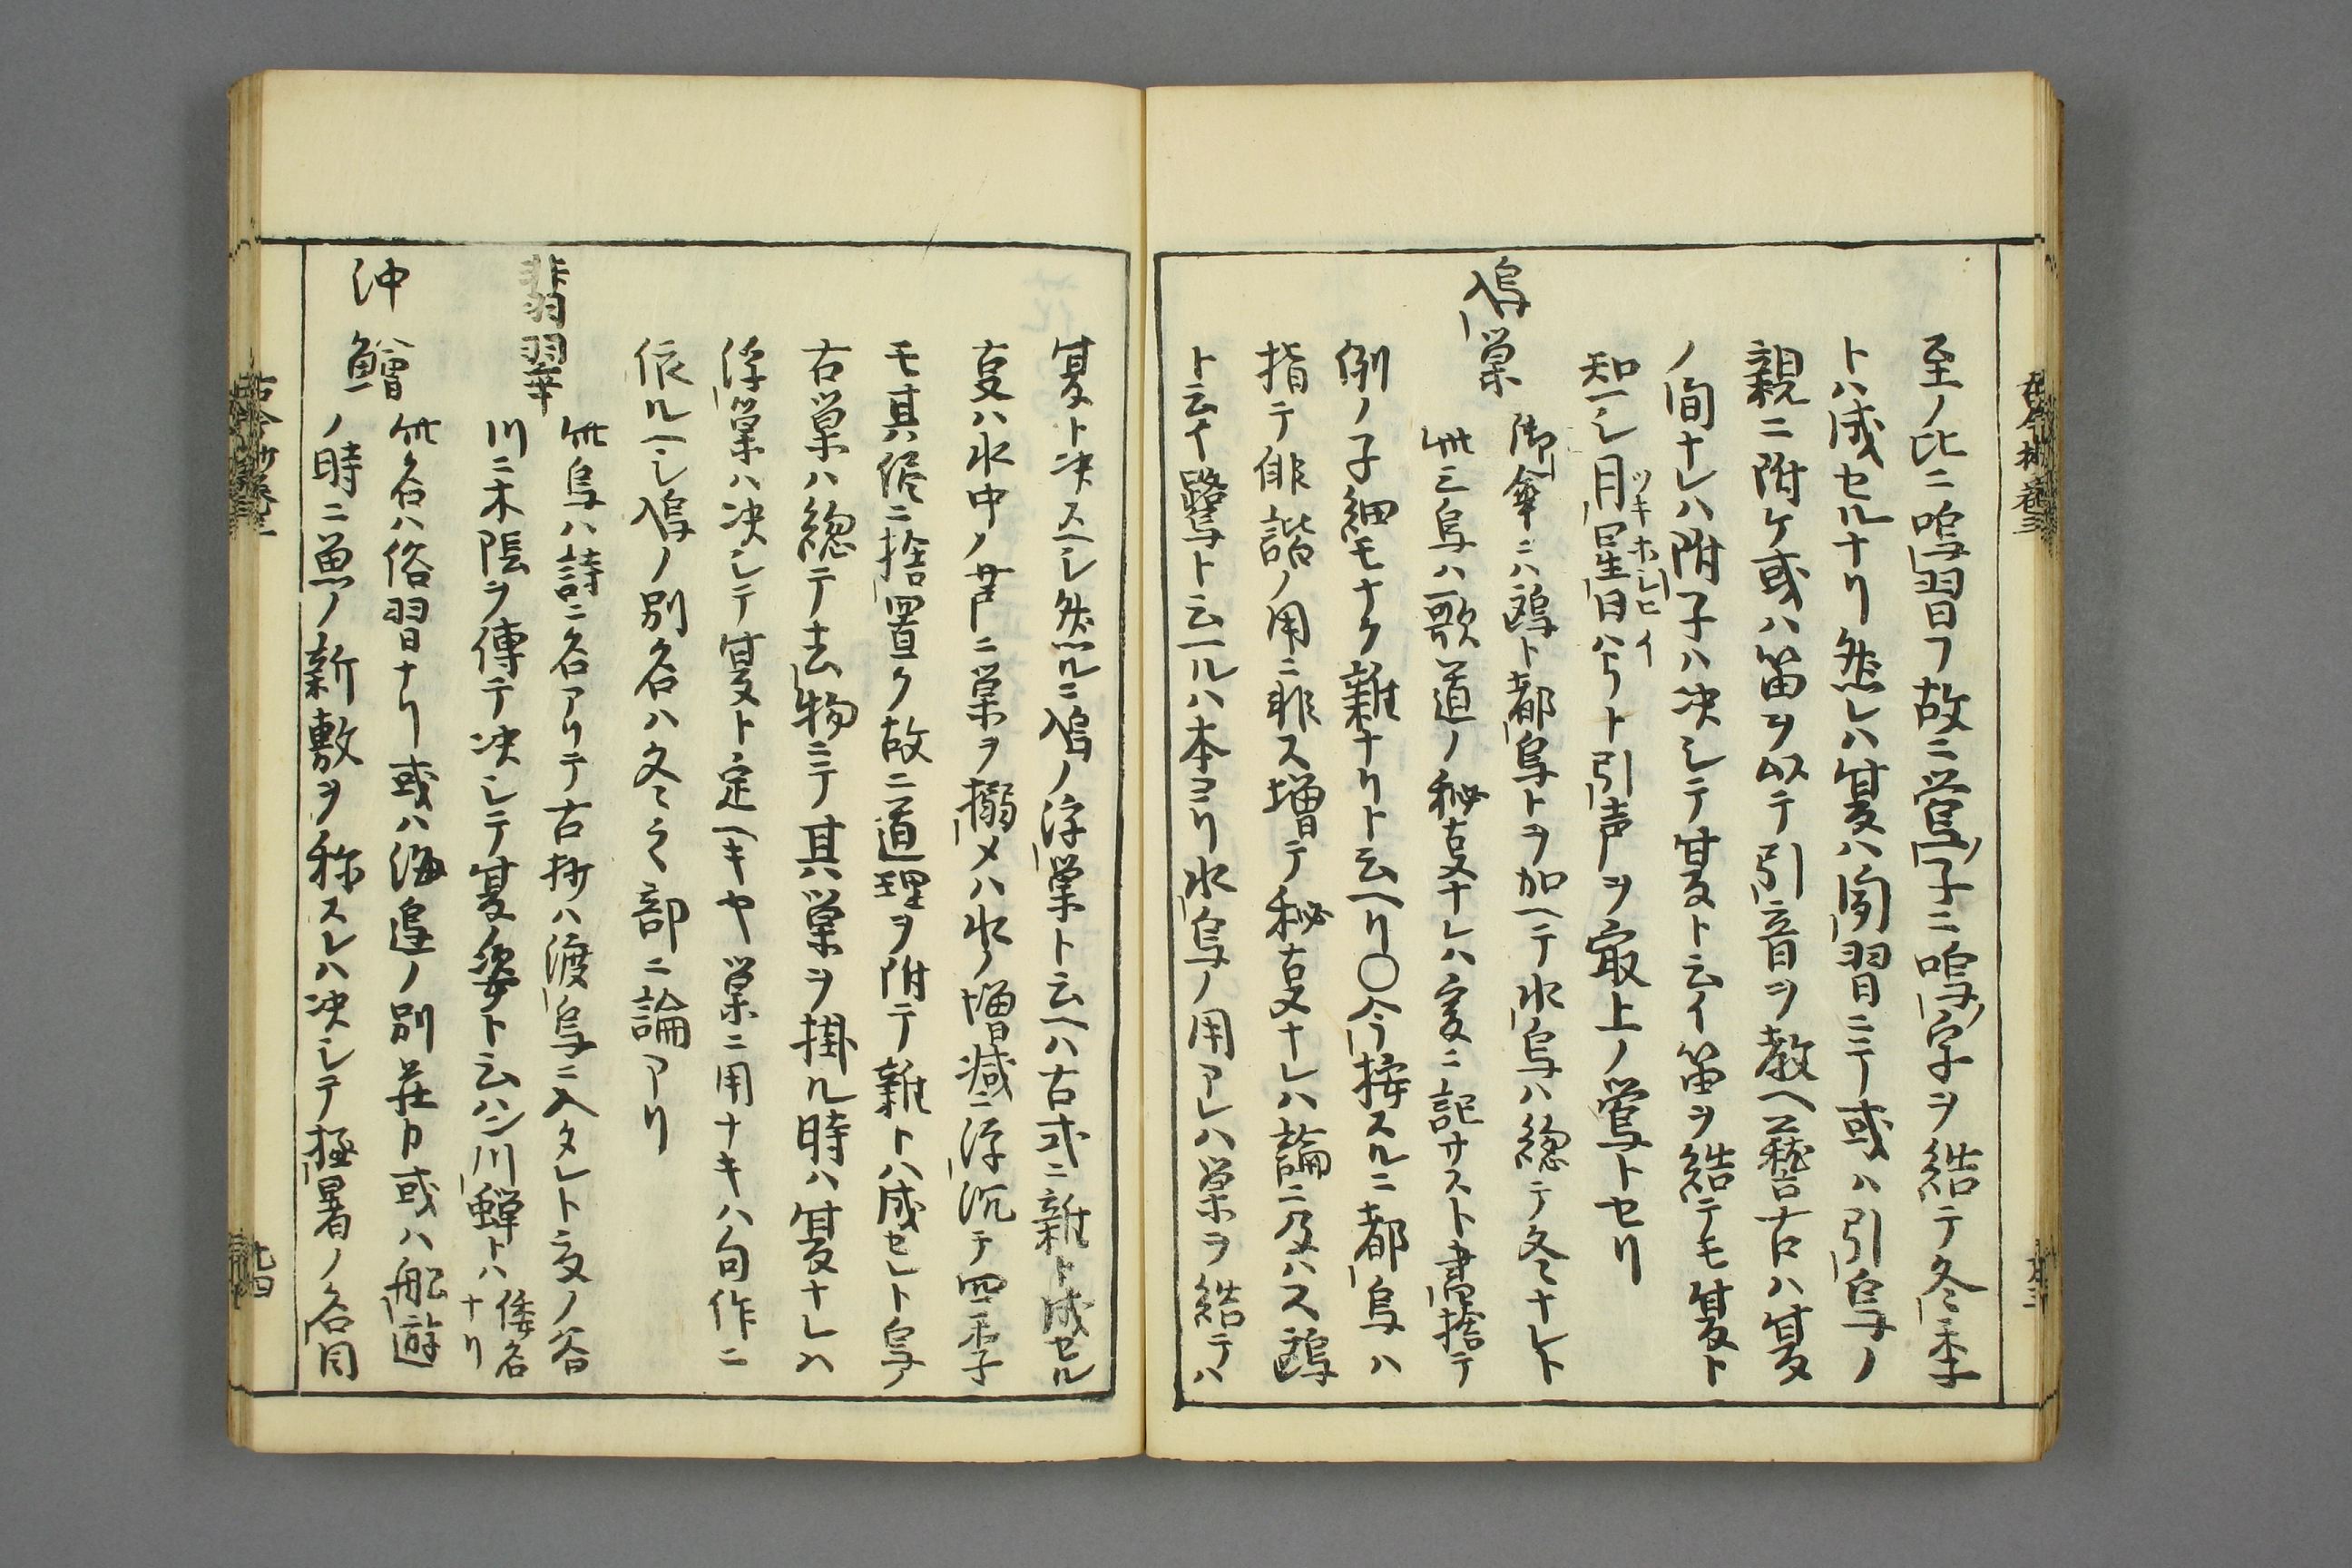 至ノ比ニ鳴習フ故ニ鶯子ニ鳴字ヲ結テ冬季
トハ成セルナリ然レハ夏ハ聞習ニテ或ハ引鳥ノ
親ニ附ケ或ハ笛ヲ以テ引音ヲ教ヘ稽古ハ夏
ノ間ナレハ附子ハ决シテ夏ト云イ笛ヲ結テモ夏ト
知ヘシ月星日ハヨリト引声ヲ最上ノ鶯トセリ
ツキホシヒイ
鳰巣
御傘ニハ鴎ト都鳥トヲ加ヘテ水鳥ハ總テ冬ナレト
此三鳥ハ歌道ノ秘夏ナレハ爰ニ記サスト書捨テ
例ノ子細モナク雜ナリト云ヘリ〇今按スルニ都鳥ハ
指テ俳諧ノ用ニ非ス増テ秘夏ナレハ論ニ及ハス鴎
ト云イ鷺ト云ヘルハ本ヨリ水鳥ノ用アレハ巣ヲ結テハ
夏ト决スヘシ然ルニ鳰ノ浮巣ト云ヘハ古式ニ雜ト成セル
夏ハ水中ノ芦ニ巣ヲ搦メハ水ノ増减ニ浮沉テ四季子
モ其侭ニ捨置ク故ニ道理ヲ附テ雜トハ成セレト鳥ノ
古巣ハ總テ去物ニテ其巣ヲ掛ル時ハ夏ナレハ
浮巣ハ决シテ夏ト定ヘキヤ巣ニ用ナキハ句作ニ
依ルヘシ鳰ノ別名ハ冬之部ニ論アリ
翡翠
此鳥ハ詩ニ名アリテ古抄ハ渡鳥ニ入タレト夏ノ谷
川ニ木陰ヲ傳テ决シテ夏ノ姿ト云ハン川蝉トハ倭名ナリ
沖鱠
此名ハ俗習ナリ或ハ海邊ノ別荘カ或ハ舩遊
ノ時ニ魚ノ新敷ヲ称スレハ决シテ極暑ノ名目